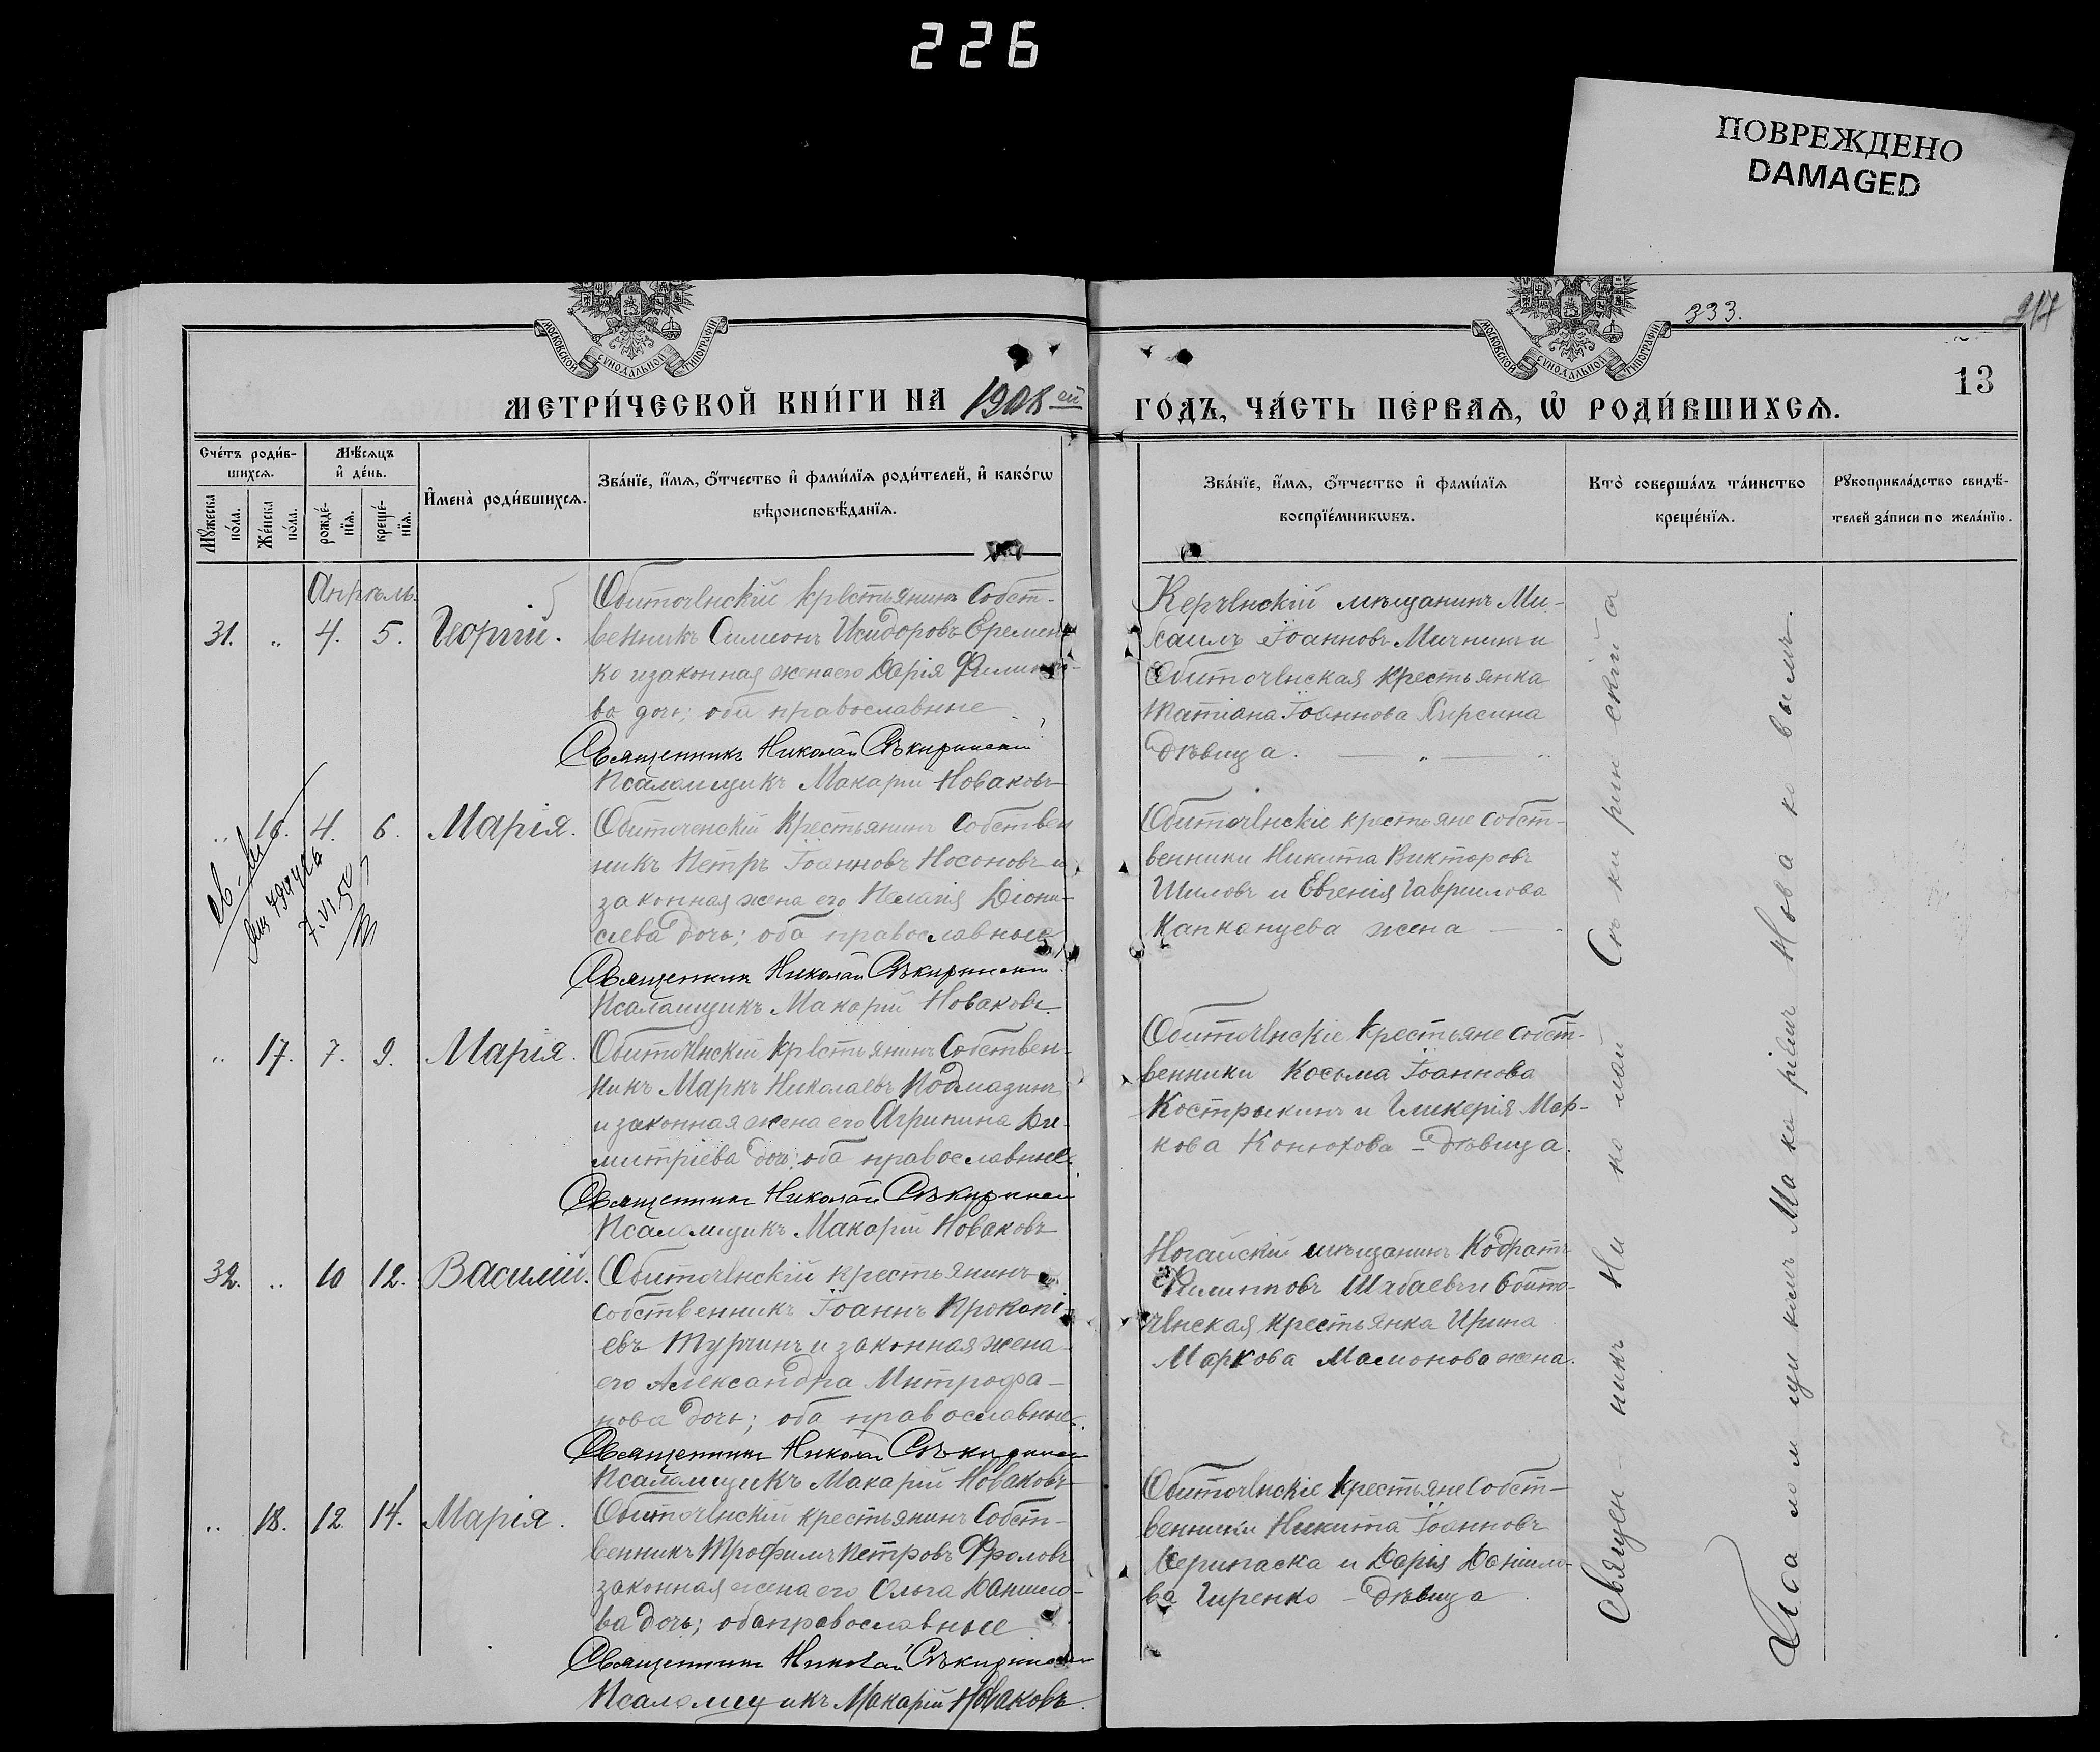 226
ПОВРЕЖДЕНО
DAMAGED
МОСКОВСКОЙ СѴНОДАЛЬНОЙ ТИПОГРАФІИ
МОСКОВСКОЙ СѴНОДАЛЬНОЙ ТИПОГРАФІИ
333.
217
13
МЕТРИ́ЧЕСКОЙ КНИ́ГИ НА 1908 ый
ГО́ДЪ, ЧА́СТЬ ПЕ́РВАѦ, Ѿ РОДИ́ВШИХСѦ.
Сче́тъ роди́в-
шихсѧ.
Мꙋжеска
по́ла.
Же́нска
по́ла.
Мѣ́сѧцъ
и҆ де́нь.
рожде́-
нїѧ.
креще́-
нїѧ.
И҆мена̀ роди́вшихсѧ.
Зва́нїе, и҆́мѧ, ѻ҆́тчество и҆ фами́лїѧ роди́телей, и҆ како́гѡ
вѣроисповѣ́данїѧ.
Зва́нїе, и҆́мѧ, ѻ҆́тчество и҆ фами́лїѧ
воспрїе́мникѡвъ.
Кто̀ соверша́лъ та́инство
креще́нїѧ.
Рꙋкоприкла́дство свидѣ́-
телей за́писи по жела́нїю.
Апрѣль.
31. „ 4. 5. Георгій.
Обиточенскій крестьянинъ собст-
венникъ Симеонъ Исидоровъ Еремен-
ко и законная жена его Дарія Филиппо-
ва дочь; оба православные
Священникъ Николай Сѣкиринскій
Псаломщикъ Макарій Новаковъ
Керченскій мѣщанинъ Ми-
хаилъ Іоанновъ Мичнинъ и
Обиточенская крестьянка
Татіана Іоаннова Кирсина
дѣвица. „
„ 16. 4. 6. Марія.
7.VI.50
Обиточенскій крестьянинъ собствен
никъ Петръ Іоанновъ Носоновъ и
законная жена его Пелагія Діони-
сіева дочь; оба православные
Священникъ Николай Сѣкиринскій
Псаломщикъ Макарій Новаковъ.
Обиточенскіе крестьяне собст-
венники Никита Викторовъ
Шиловъ и Евгенія Гавриилова
Капканцева жена
„ 17. 7. 9. Марія.
Обиточенскій крестьянинъ Собствен-
никъ Маркъ Николаевъ Подмазинъ
и законная жена его Агрипина Ди-
митріева дочь; оба православные.
Священникъ Николай Сѣкиринскій
Псаломщикъ Макарій Новаковъ
Обиточенскіе крестьяне собст-
венники Косьма Іоаннова
Кострыкинъ и Гликерія Мар-
кова Конюхова – дѣвица.
32. „ 10 12. Василій.
Обиточенскій крестьянинъ
собственникъ Іоаннъ Прокопі-
евъ Турчинъ и законная жена
его Александра Митрофа-
нова дочь; оба православные.
Священникъ Николай Сѣкиринскій
Псаломщикъ Макарій Новаковъ
Ногайскій мѣщанинъ Кодратъ
Филипповъ Шабаевъ и Обито-
ченская крестьянка Ирина
Маркова Мамонова жена.
„ 18. 12. 14. Марія.
Обиточенскій крестьянинъ Собст-
венникъ Трофимъ Петровъ Фроловъ
законная жена его Ольга Данило-
ва дочь; оба православные
Священникъ Николай Сѣкиринскій
Псаломщикъ Макарій Новаковъ.
Обиточенскіе крестьяне Собст-
венники Никита Іоанновъ
Чернаска и Дарія Даніило-
ва Гиренко – дѣвица
Священ-никъ Николай Сѣкиринскій а
Псаломщикомъ Макаріемъ Новаковымъ.